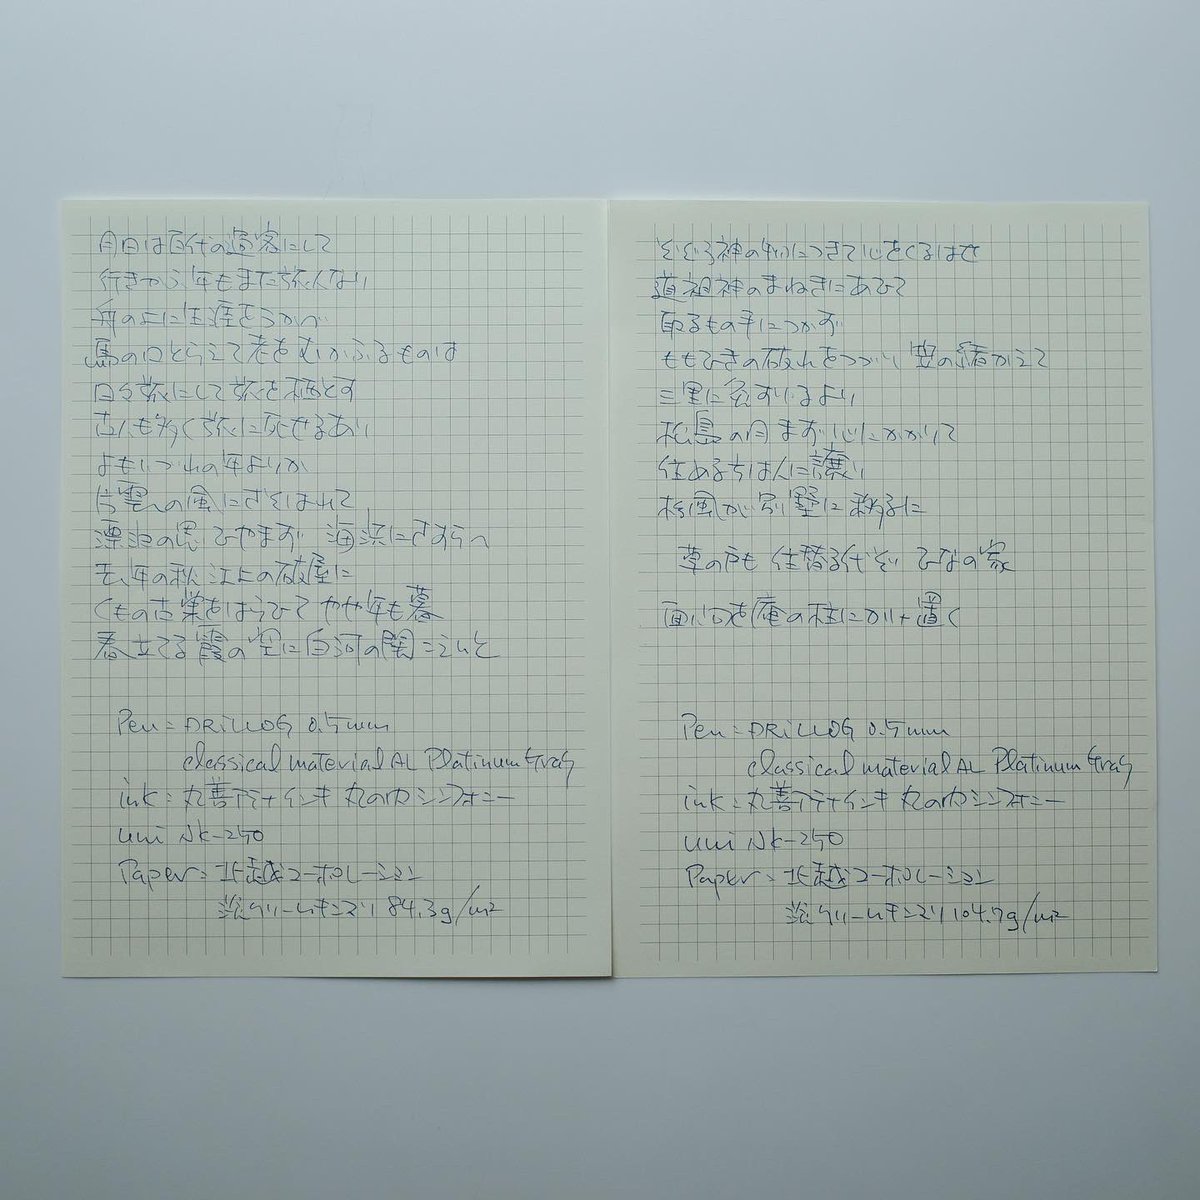 月日は百代の過客にして
行きかふ年もまた旅人なり
舟の上に生涯をうかべ
馬の口とらえて老をむかふるものは
日々旅にして旅を栖とす
古人も多く旅に死せるあり
よもいづれの年よりか
片雲の風にさそはれて
漂泊の思ひやまず 海浜にさすらへ
去年の秋 江上の破屋に
くもの古巣をはらひて やや年も暮
春立てる霞の空に白河の関こえんと
Pen = DRILLOG 0.5mm
classical material AL Platinum Gray
ink = 丸善アテナインキ 丸の内シンフォニー
uni NK-250
Paper = 北越コーポレーション
淡クリームキンマリ 84.3g/m²
そぞろ神の物につきて心をくるはせ
道祖神のまねきにあひて
取るもの手につかず
ももひきの破れをつづり 笠の緒かえて
三里に灸すゆるより
松島の月まず心にかかりて
住める方は人に譲り
杉風が別墅に移るに
草の戸も 住替る代ぞ ひなの家
面八句を庵の柱にかけ置く
Pen = DRILLOG 0.5mm
classical material AL Platinum Gray
ink = 丸善アテナインキ 丸の内シンフォニー
uni NK-250
Paper = 北越コーポレーション
淡クリームキンマリ 104.7g/m²